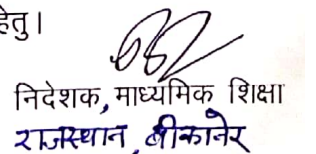 हेतु।
निदेशक, माध्यमिक शिक्षा
राजस्थान, बीकानेर